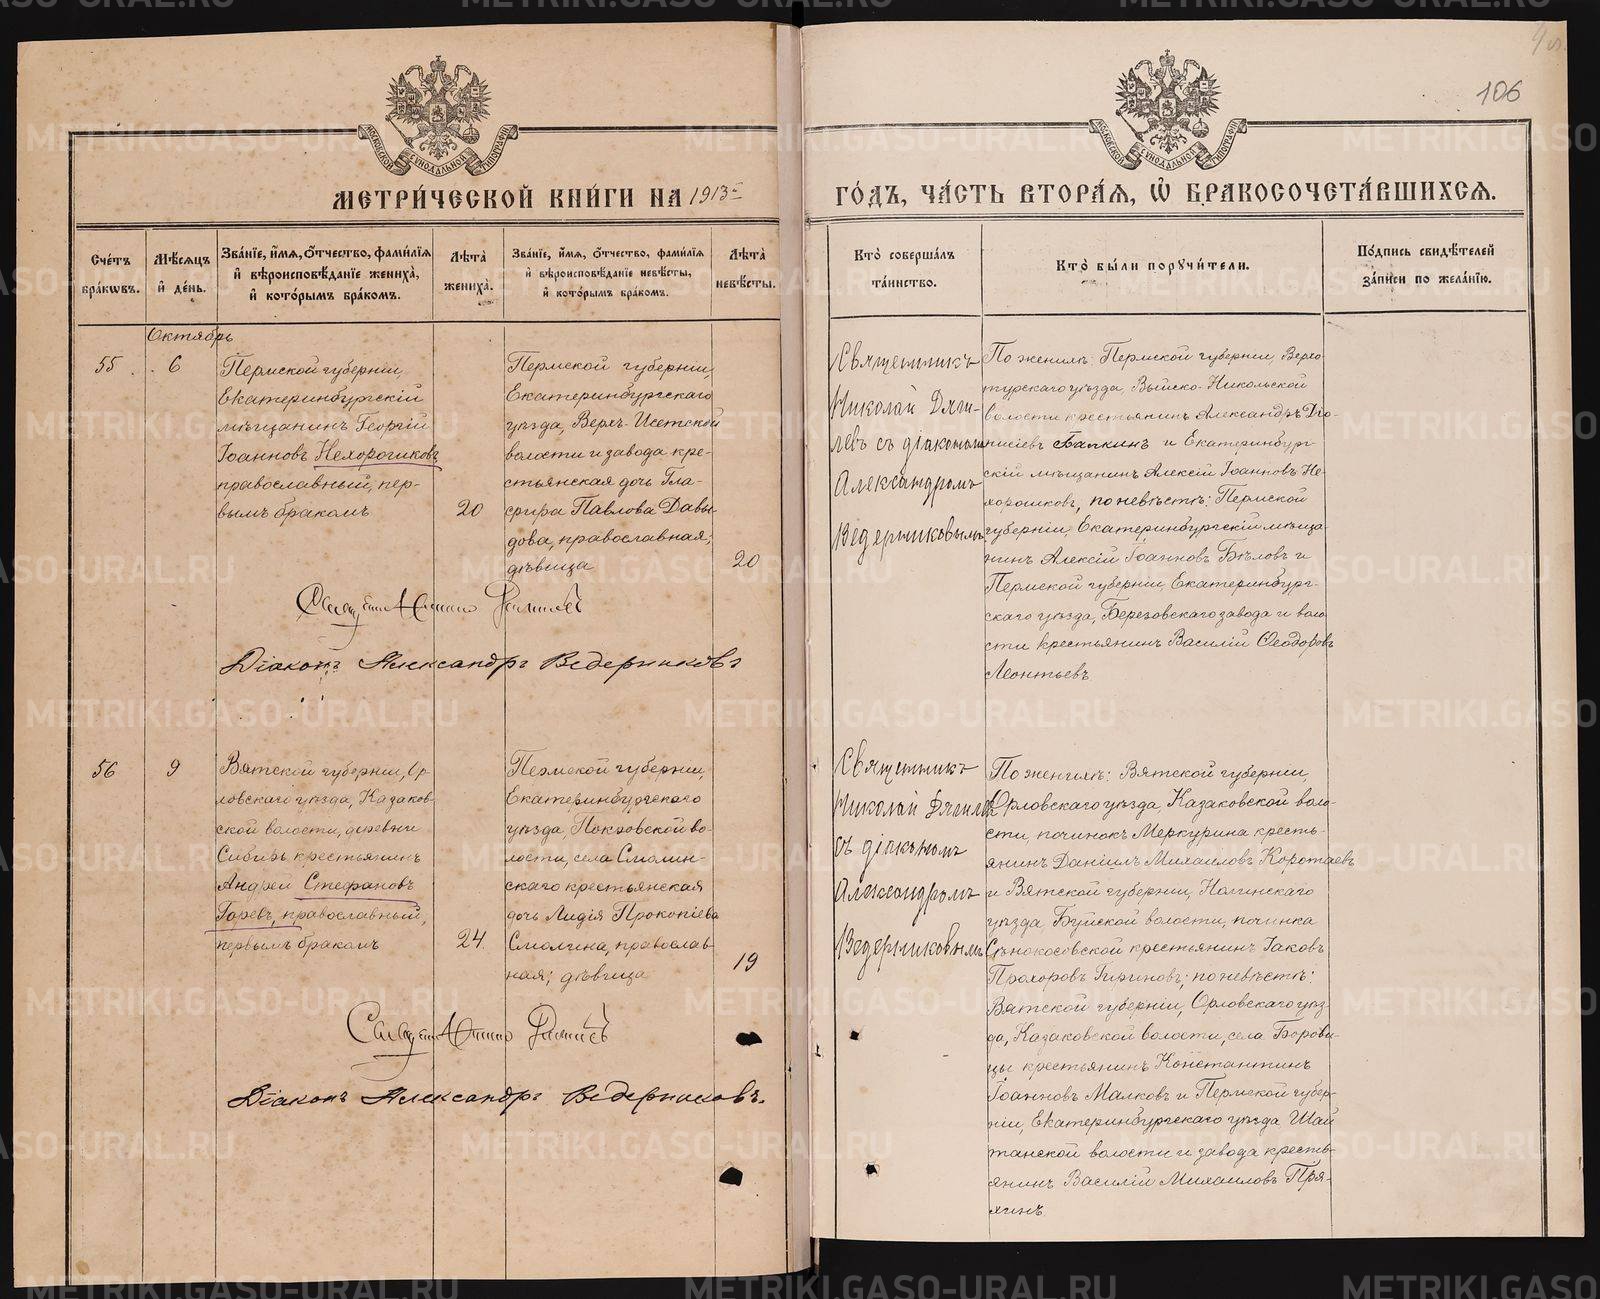 106
МОСКОВСКОЙ СѴНОДАЛЬНОЙ ТИПОГРАФІИ
МОСКОВСКОЙ СѴНОДАЛЬНОЙ ТИПОГРАФІИ
МЕТРИ́ЧЕСКОЙ КНИ́ГИ НА 1913 г
ГО́ДЪ, ЧА́СТЬ ВТОРА́Ѧ, Ѡ БРАКОСОЧЕТА́ВШИХСѦ.
Сче́тъ бра́кѡвъ.
Мѣ́сѧцъ и҆ де́нь.
Зва́нїе, и҆́мѧ, ѻ҆́тчество, фами́лїѧ и҆ вѣроисповѣ́данїе женихà, и҆ кото́рымъ бра́комъ.
Лѣ́та женихà.
Зва́нїе, и҆́мѧ, ѻ҆́тчество, фами́лїѧ и҆ вѣроисповѣ́данїе невѣ́сты, и҆ кото́рымъ бра́комъ.
Лѣ́та невѣ́сты.
Кто̀ соверша́лъ та́инство.
Кто̀ бы́ли порꙋчи́тели.
По́дпись свидѣ́телей за́писи по жела́нїю.
Октябрь
55
6
Пермской губерніи,
Екатеринбургскій
мѣщанинъ Георгій
Іоанновъ Нехорошковъ
православный, пер-
вымъ бракомъ
20
Пермской губерніи,
Екатеринбургскаго
уѣзда, Верхъ-Исетской
волости и завода кре-
стьянская дочь Гла-
фира Павлова Давы-
дова, православная;
дѣвица
20
Священникъ
Николай Дяги-
левъ съ діакономъ
Александромъ
Ведерниковымъ
По женихѣ: Пермской губерніи, Верхо-
турскаго уѣзда, Выйско-Никольской
волости крестьянинъ Александръ Діо-
нисіевъ Балкинъ и Екатеринбург-
скій мѣщанинъ Алексій Іоанновъ Не-
хорошковъ, по невѣстѣ: Пермской
губерніи, Екатеринбургскій мѣща-
нинъ Алексій Іоанновъ Бѣловъ и
Пермской губерніи, Екатеринбург-
скаго уѣзда, Березовскаго завода и воло-
сти крестьянинъ Василій Ѳеодоровъ
Леонтьевъ
Діаконъ Александръ Ведерниковъ
56
9
Вятской губерніи, Ор-
ловскаго уѣзда, Казаков-
ской волости, деревни
Сибирь крестьянинъ
Андрей Стефановъ
Горевъ, православный,
первымъ бракомъ
24.
Пермской губерніи,
Екатеринбургскаго
уѣзда, Покровской во-
лости, села Смолин-
скаго крестьянская
дочь Лидія Прокопіева
Смолина, православ-
ная; дѣвица
19
Священникъ
Николай Дягилевъ
съ діакономъ
Александромъ
Ведерниковымъ
По женихѣ: Вятской губерніи,
Орловскаго уѣзда, Казаковской воло-
сти, починокъ Меркурина кресть-
янинъ Даніилъ Михаиловъ Коротаевъ
и Вятской губерніи, Нолинскаго
уѣзда, Буйской волости, починка
Сѣнокосовской крестьянинъ Іаковъ
Прохоровъ; по невѣстѣ:
Вятской губерніи, Орловскаго уѣз-
да, Казаковской волости, села Борови-
цы крестьянинъ Константинъ
Іоанновъ Малковъ и Пермской губер-
ніи, Екатеринбургскаго уѣзда Шай-
танской волости и завода кресть-
янинъ Василій Михаиловъ Пря-
хинъ
Діаконъ Александръ Ведерниковъ.
METRIKI.GASO-URAL.RU